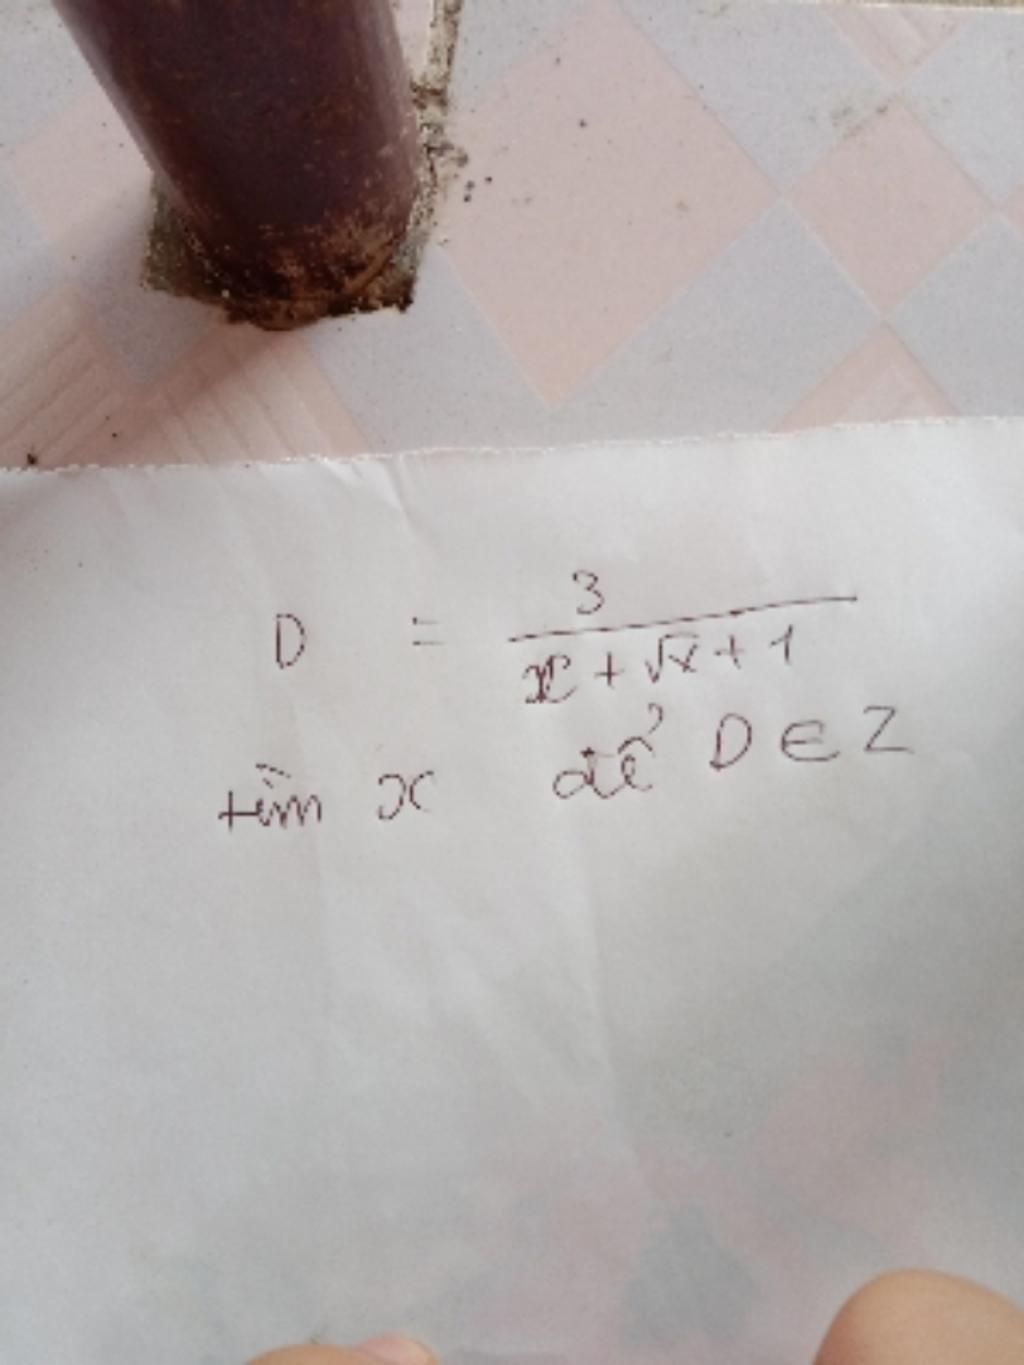 D = 3 / (x + √x + 1)
tìm x để D ∈ Z